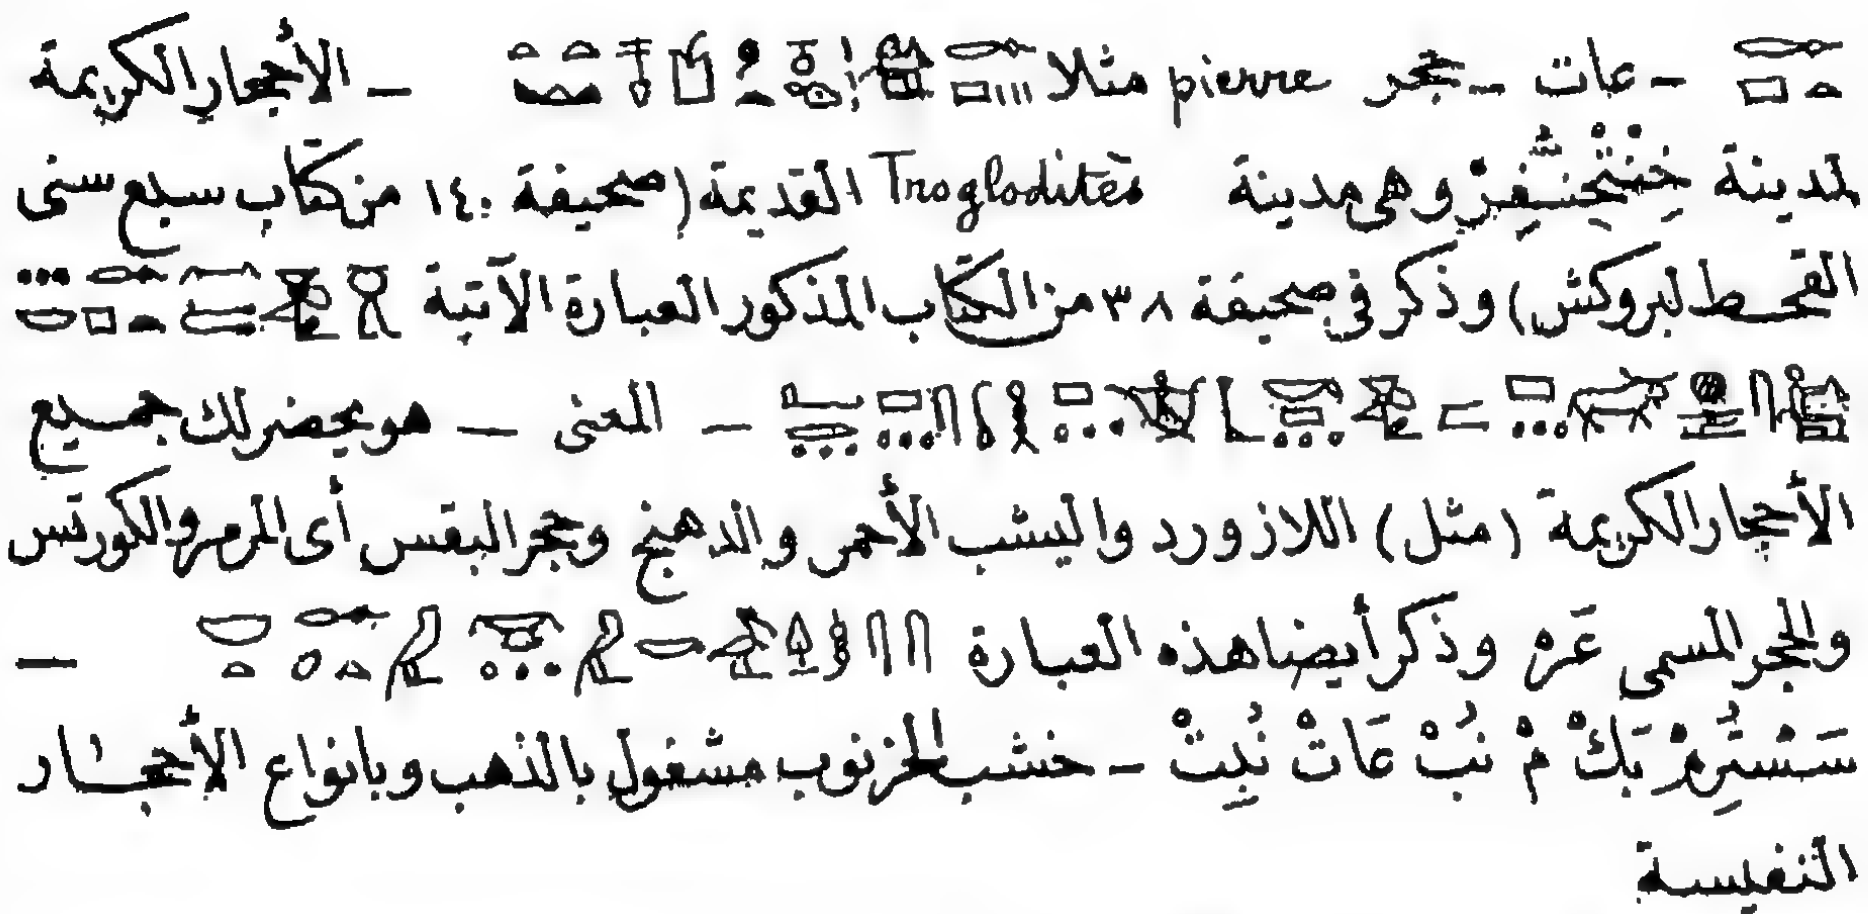 ـ عات ـ حجر pierre مثلا ـ الأحجار الكريمة
لمدينة وهى مدينة Troglodites القديمة (صحيفة ١٤٠ من كتاب سبع سنى
القحط لبروكش) وذكر فى صحيفة ٣٨ من الكتاب المذكور العبارة الآتية
ـ المعنى ـ هو يحضر لك جميع
الأحجار الكريمة (مثل) اللازورد واليشب الأحمر والدهنج وحجر البقس أى المرمر والكورتس
والحجر المسمى وذكر أيضا هذه العبارة ـ
سَسْتِرُمْ بَكْ مْ نُبْ عَاتْ نُبِتْ ـ خشب الخرنوب مشغول بالذهب وبانواع الأحجار
النفيسة